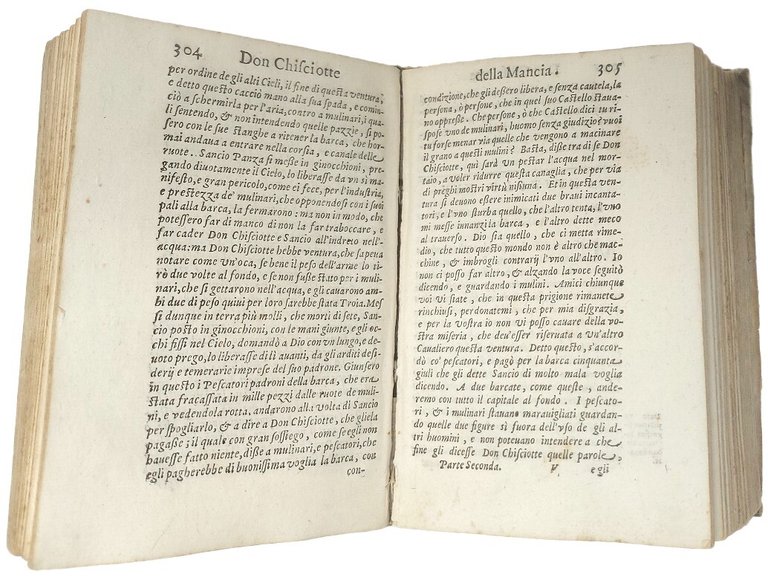 304 Don Chiſciotte
per ordine de gli alti Cieli, il fine di queſta ventura,
e detto queſto cacciò mano alla ſua ſpada, e comin-
ciò a ſchermirla per l'aria, contro a mulinari, i qua-
li ſentendo, & non intendendo quelle pazzie, ſi po-
ſero con le ſue ſtanghe a ritener la barca, che hor-
mai andaua a entrare nella corſia, e canale delle
ruote. Sancio Panza ſi meſſe in ginocchioni, pre-
gando diuotamente il Cielo, lo liberaſſe da vn ſi ma-
nifeſto, e gran pericolo, come ei fece, per l'induſtria,
e preſtezza de' mulinari, che opponendoſi con i ſuoi
pali alla barca, la fermarono: ma non in modo, che
poteſſero far di manco di non la far traboccare, e
far cader Don Chiſciotte e Sancio all'indreto nell'-
acqua: ma Don Chiſciotte hebbe ventura, che ſapeua
notare come vn'oca, ſe bene il peſo dell'arme lo ti-
rò due volte al fondo, e ſe non fuſſe ſtato per i muli-
nari, che ſi gettarono nell'acqua, e gli cauarono am-
bi due di peſo quiui per loro ſarebbe ſtata Troia. Meſ
ſi dunque in terra più molli, che morti di ſete, San-
cio poſto in ginocchioni, con le mani giunte, e gli oc-
chi fiſſi nel Cielo, domandò a Dio con vn lungo, e de-
uoto prego, lo liberaſſe di lì auanti, da gli arditi deſi-
derij e temerarie impreſe del ſuo padrone. Giunſero
in queſto i Peſcatori padroni della barca, che era
ſtata fracaſſata in mille pezzi dalle ruote de muli-
ni, e vedendola rotta, andarono alla volta di Sancio
per ſpogliarlo, & a dire a Don Chiſciotte, che gliela
pagaſſe; il qual con gran ſoſſiego, come ſe egli non
haueſſe fatto niente, diſſe a mulinari, e peſcatori, che
egli pagherebbe di buoniſſima voglia la barca, con
con-
della Mancia. 305
condizione, che gli deſſero libera, e ſenza cautela, la
perſona, ò perſone, che in quel ſuo Caſtello ſtaua-
no oppreſſe. Che perſone, ò che Caſtello dici tu ri-
ſpoſe vno de mulinari, huomo ſenza giudizio? vuoi
tu forſe menar via quelle che vengono a macinare
il grano a queſti mulini? Baſta, diſſe tra di ſe Don
Chiſciotte, qui ſarà vn peſtar l'acqua nel mor-
taio, a voler ridurre queſta canaglia, che per via
di preghi moſtri virtù niſſuna. Et in queſta ven-
tura ſi deuono eſſere inimicati due braui incanta-
tori, e l'vno ſturba quello, che l'altro tenta, l'vno
mi meſſe innanzi la barca, e l'altro dette meco
al trauerſo. Dio ſia quello, che ci metta rime-
dio, che tutto queſto mondo non è altro che mac-
chine, & imbrogli contrarij l'vno all'altro. Io
non ci poſſo far altro, & alzando la voce ſeguitò
dicendo, e guardando i mulini. Amici chiunque
voi vi ſiate, che in queſta prigione rimanete
rinchiuſi, perdonatemi, che per mia diſgrazia,
e per la voſtra io non vi poſſo cauare della vo-
ſtra miſeria, che deu'eſſer riſeruata a vn'altro
Caualiero queſta ventura. Detto queſto, s'accor-
dò co' peſcatori, e pagò per la barca cinquanta
giuli che gli dette Sancio di molto mala voglia
dicendo. A due barcate, come queſte, ande-
remo con tutto il capitale al fondo. I peſcato-
ri, & i mulinari ſtauano marauigliati guardan-
do quelle due figure sì fuora dell'vſo de gli al-
tri huomini, e non poteuano intendere a che
fine gli diceſſe Don Chiſciotte quelle parole,
Parte Seconda. V e gli